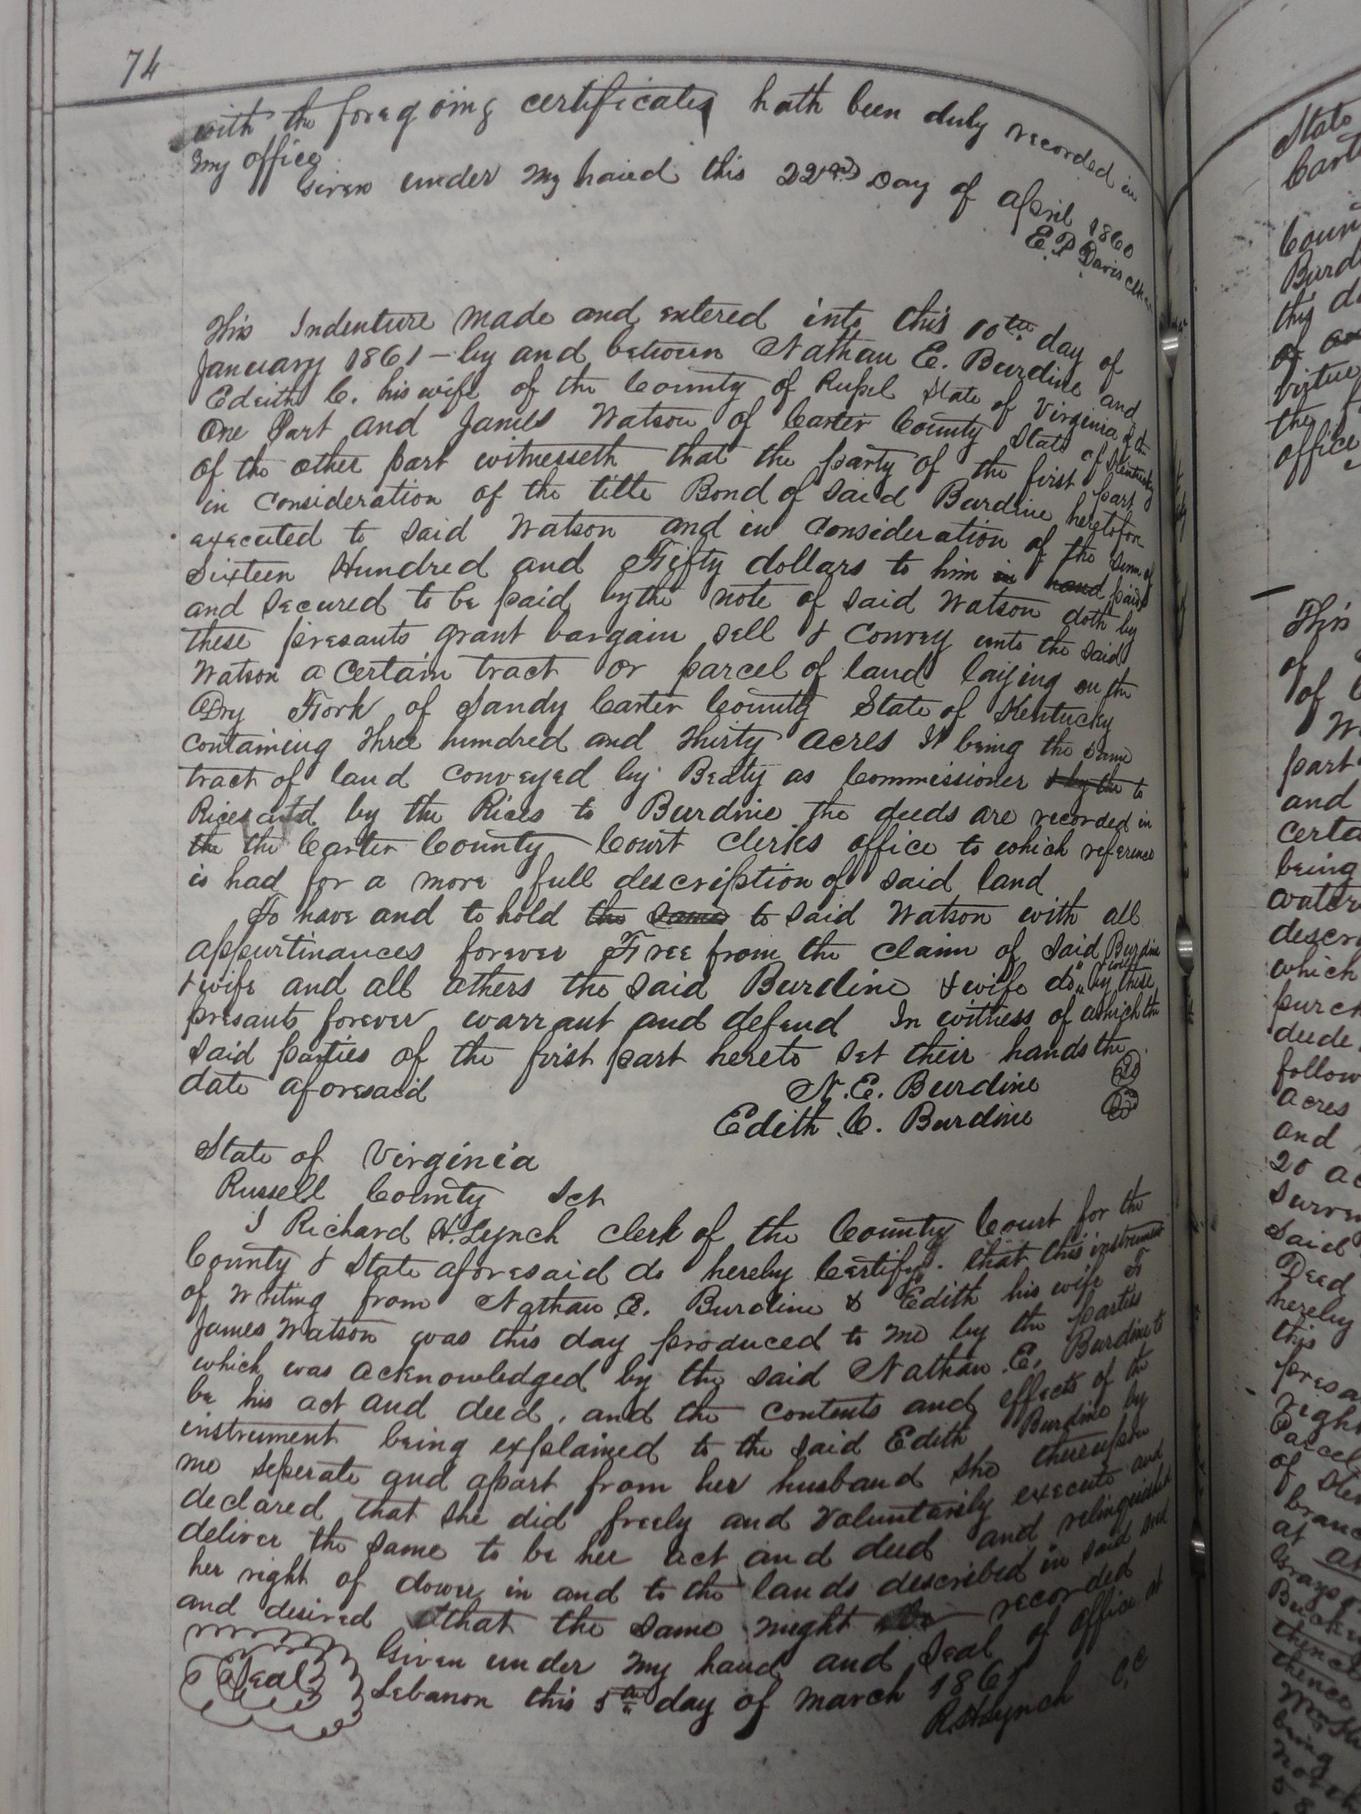 74
with the foregoing certificates hath been duly recorded in
my office
Given under my hand this 22nd Day of April 1860
E. P. Davis clk
This Indenture made and entered into this 10th day of
January 1861 – by and between Nathan E. Burdine and
Edeith C. his wife of the County of Russel State of Virginia of the
One Part and James Watson of Carter County State of Kentucky
of the other part witnesseth that the party of the first part
in consideration of the title Bond of said Burdine heretofore
executed to said Watson and in consideration of the sum of
Sixteen Hundred and Fifty dollars to him in hand paid
and secured to be paid by the note of said Watson doth by
these presants grant bargain sell & convey unto the said
Watson a Certain tract or parcel of land laying on the
Dry Fork of Sandy Carter County State of Kentucky
containing three hundred and thirty acres it being the same
tract of land conveyed by Beaty as Commissioner & by the to
Rices and by the Rices to Burdine the deeds are recorded in
the the Carter County Court Clerks office to which reference
is had for a more full description of said land
To have and to hold the same to said Watson with all
appurtinances forever Free from the claim of said Burdine
& wife and all others the said Burdine & wife do by these
presants forever warrant and defend In witness of which the
said parties of the first part hereto set their hands the
date aforesaid N. E. Burdine
Edith C. Burdine
State of Virginia
Russell County Sct
I Richard H. Lynch clerk of the County Court for the
County & State aforesaid do hereby Certify. that this instrument
of writing from Nathan E. Burdine & Edith his wife to
James Watson was this day produced to me by the parties
which was acknowledged by the said Nathan E. Burdine to
be his act and deed, and the contents and effects of the
instrument being explained to the said Edith Burdine by
me seperate and apart from her husband she thereupon
declared that she did freely and Voluntarily execute and
deliver the same to be her act and deed and relinquished
her right of dower in and to the lands described in said deed
and desired that the same might be recorded
Seal Given under my hand and Seal of office at
Lebanon this 5th day of March 1861
R. H. Lynch C.C
State
Cart
Coun
Burd
this d
virtue
the
office
This
of
of
part
and
certa
being
water
descri
which
purch
deede
follow
acres
and
20 ac
Surve
said
Deed
hereby
this
presa
right
Parcel
of
branc
at
thence
thence
being